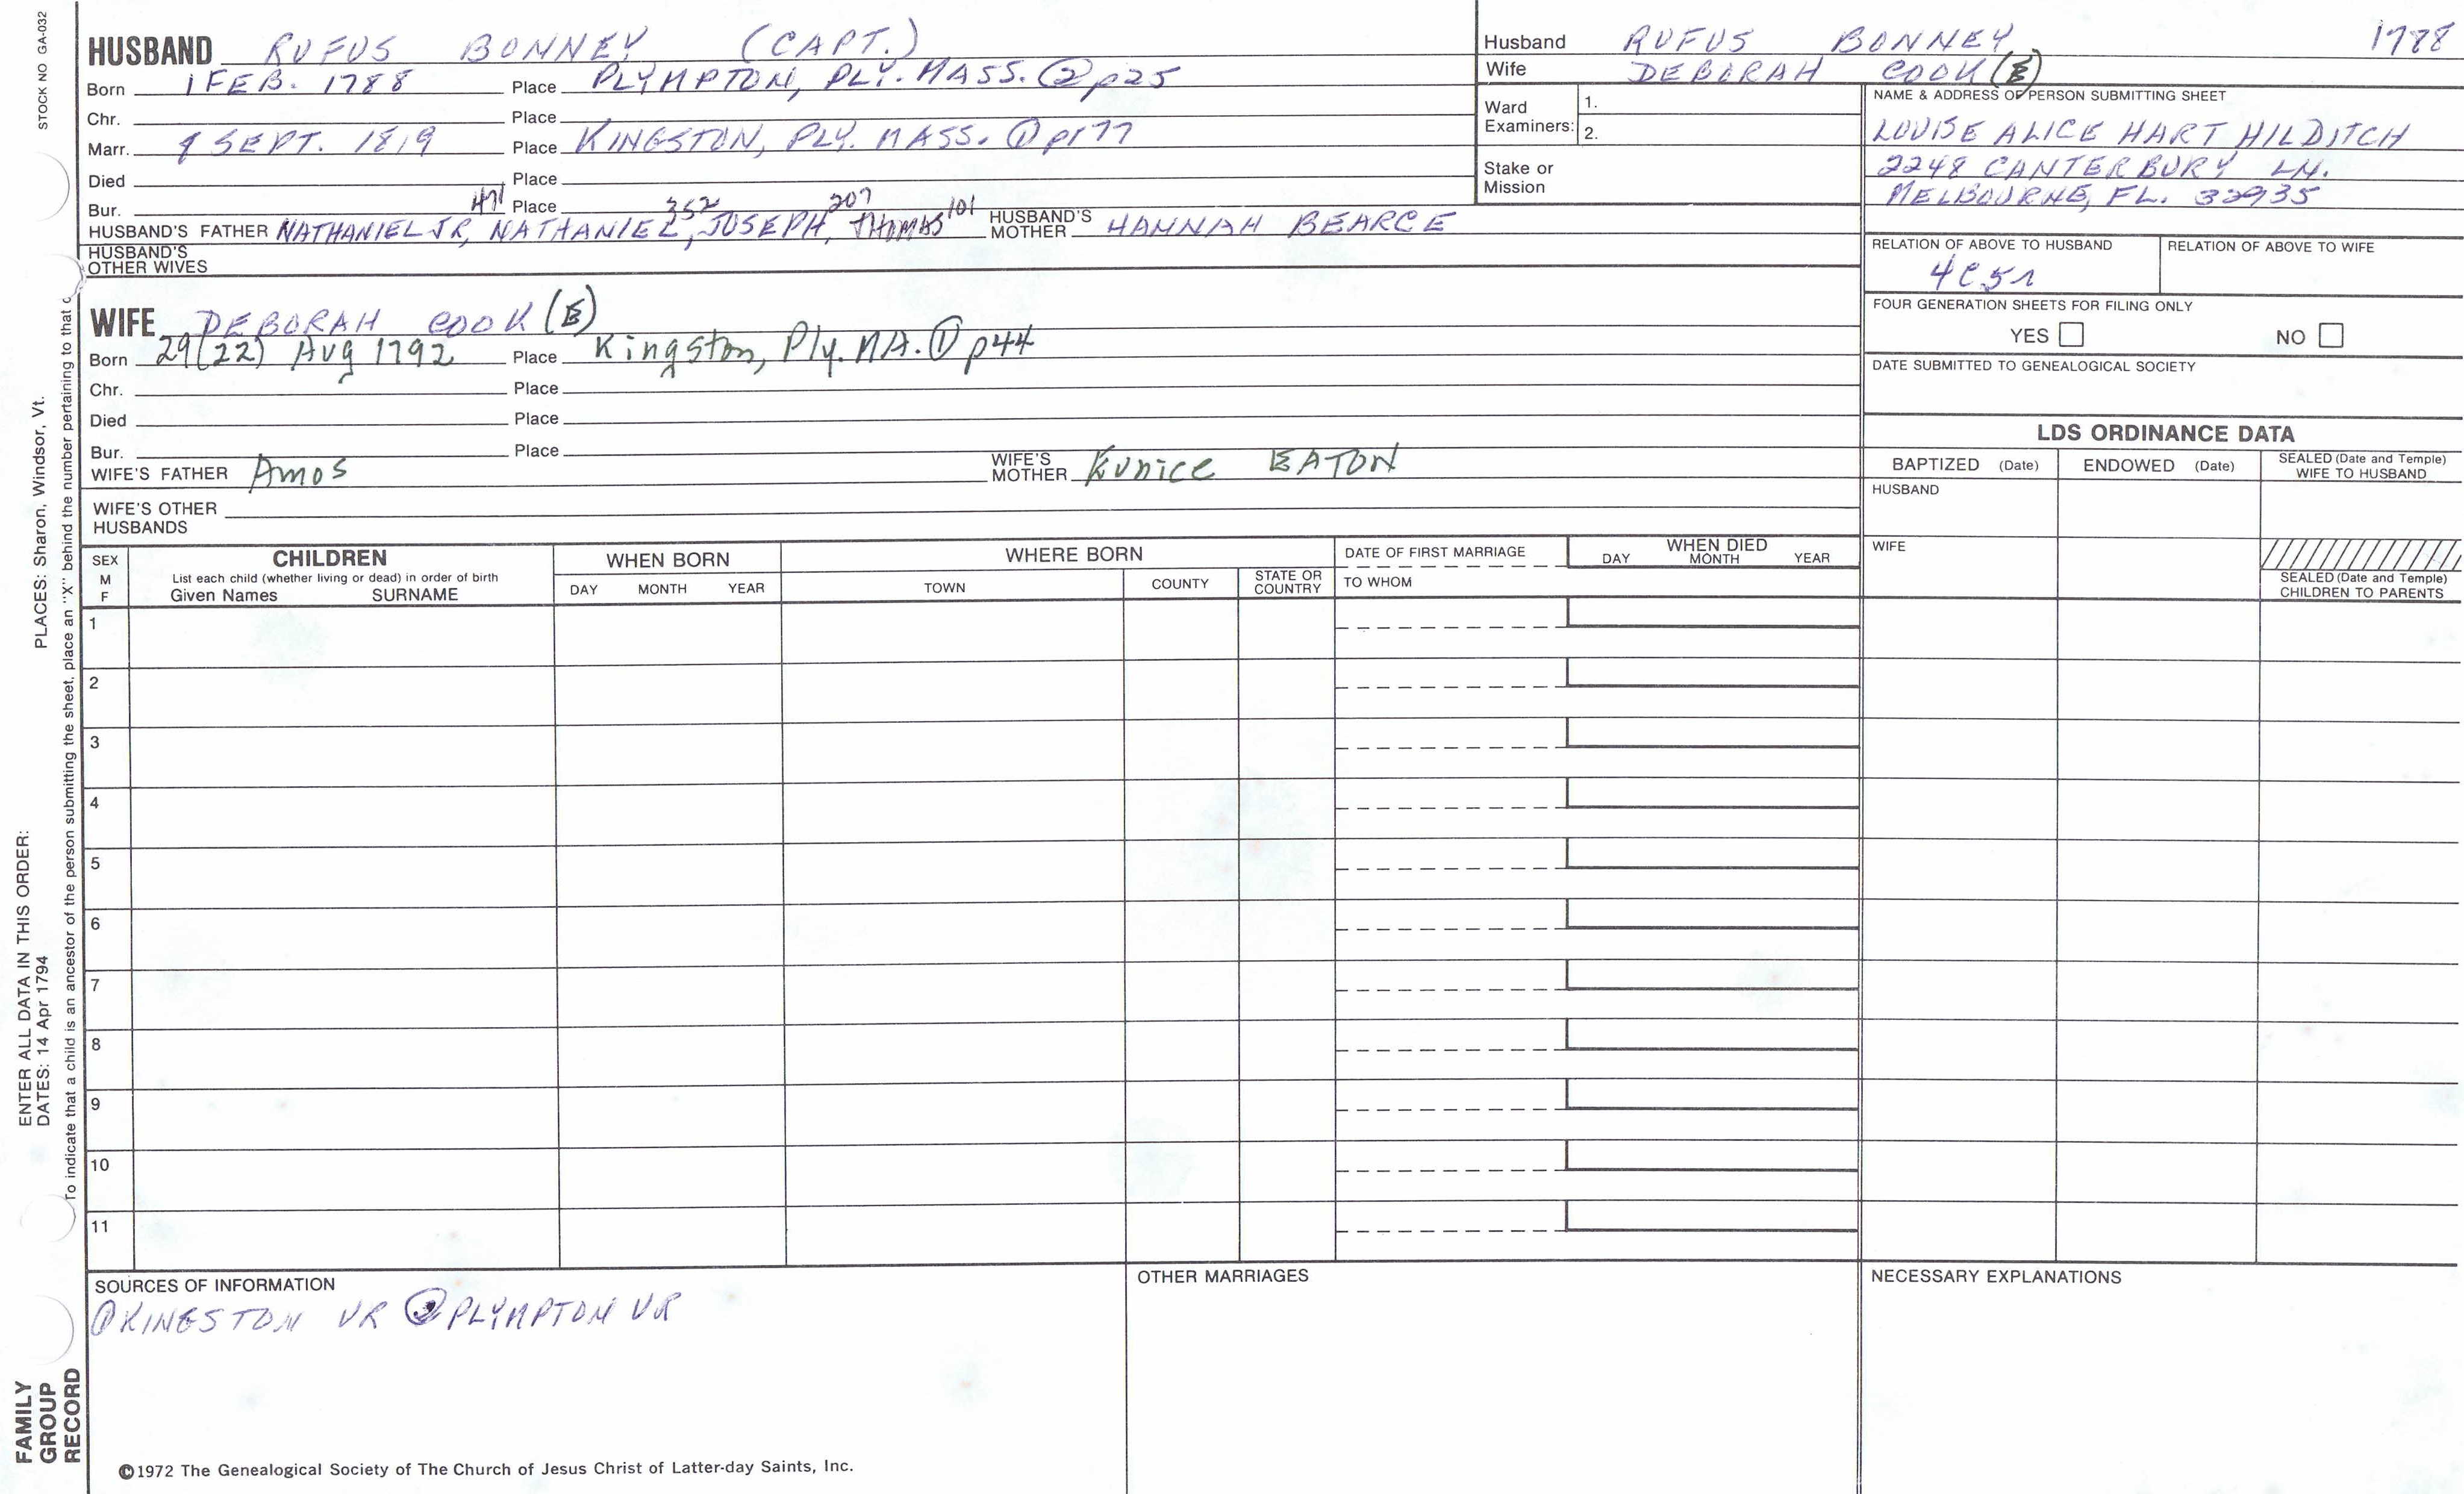 STOCK NO GA-032
HUSBAND RUFUS BONNEY (CAPT.)
Born 1 FEB. 1788 Place PLYMPTON, PLY. MASS. ② p25
Chr. Place
Marr. 9 SEPT. 1819 Place KINGSTON, PLY. MASS. ① p177
Died Place
Bur. Place
471 352 207 101
HUSBAND'S FATHER NATHANIEL JR, NATHANIEL, JOSEPH, THOMAS HUSBAND'S MOTHER HANNAH BEARCE
HUSBAND'S OTHER WIVES
WIFE DEBORAH COOK (E)
Born 29(22) Aug 1792 Place Kingston, Ply. MA. ① p44
Chr. Place
Died Place
Bur. Place
WIFE'S FATHER Amos WIFE'S MOTHER Eunice EATON
WIFE'S OTHER HUSBANDS
Husband RUFUS BONNEY 1788
Wife DEBORAH COOK (E)
Ward Examiners: 1.
2.
Stake or Mission
NAME & ADDRESS OF PERSON SUBMITTING SHEET
LOUISE ALICE HART HILDITCH
2248 CANTERBURY LN.
MELBOURNE, FL. 32935
RELATION OF ABOVE TO HUSBAND RELATION OF ABOVE TO WIFE
4C5r
FOUR GENERATION SHEETS FOR FILING ONLY
YES NO
DATE SUBMITTED TO GENEALOGICAL SOCIETY
LDS ORDINANCE DATA
BAPTIZED (Date) ENDOWED (Date) SEALED (Date and Temple) WIFE TO HUSBAND
HUSBAND
WIFE
SEALED (Date and Temple)
CHILDREN TO PARENTS
SEX M F
CHILDREN
List each child (whether living or dead) in order of birth
Given Names SURNAME
WHEN BORN
DAY MONTH YEAR
WHERE BORN
TOWN COUNTY STATE OR COUNTRY
DATE OF FIRST MARRIAGE
TO WHOM
WHEN DIED
DAY MONTH YEAR
1
2
3
4
5
6
7
8
9
10
11
SOURCES OF INFORMATION
① KINGSTON VR ② PLYMPTON VR
OTHER MARRIAGES
NECESSARY EXPLANATIONS
©1972 The Genealogical Society of The Church of Jesus Christ of Latter-day Saints, Inc.
FAMILY
GROUP
RECORD
ENTER ALL DATA IN THIS ORDER:
DATES: 14 Apr 1794
PLACES: Sharon, Windsor, Vt.
To indicate that a child is an ancestor of the person submitting the sheet, place an "X" behind the number pertaining to that